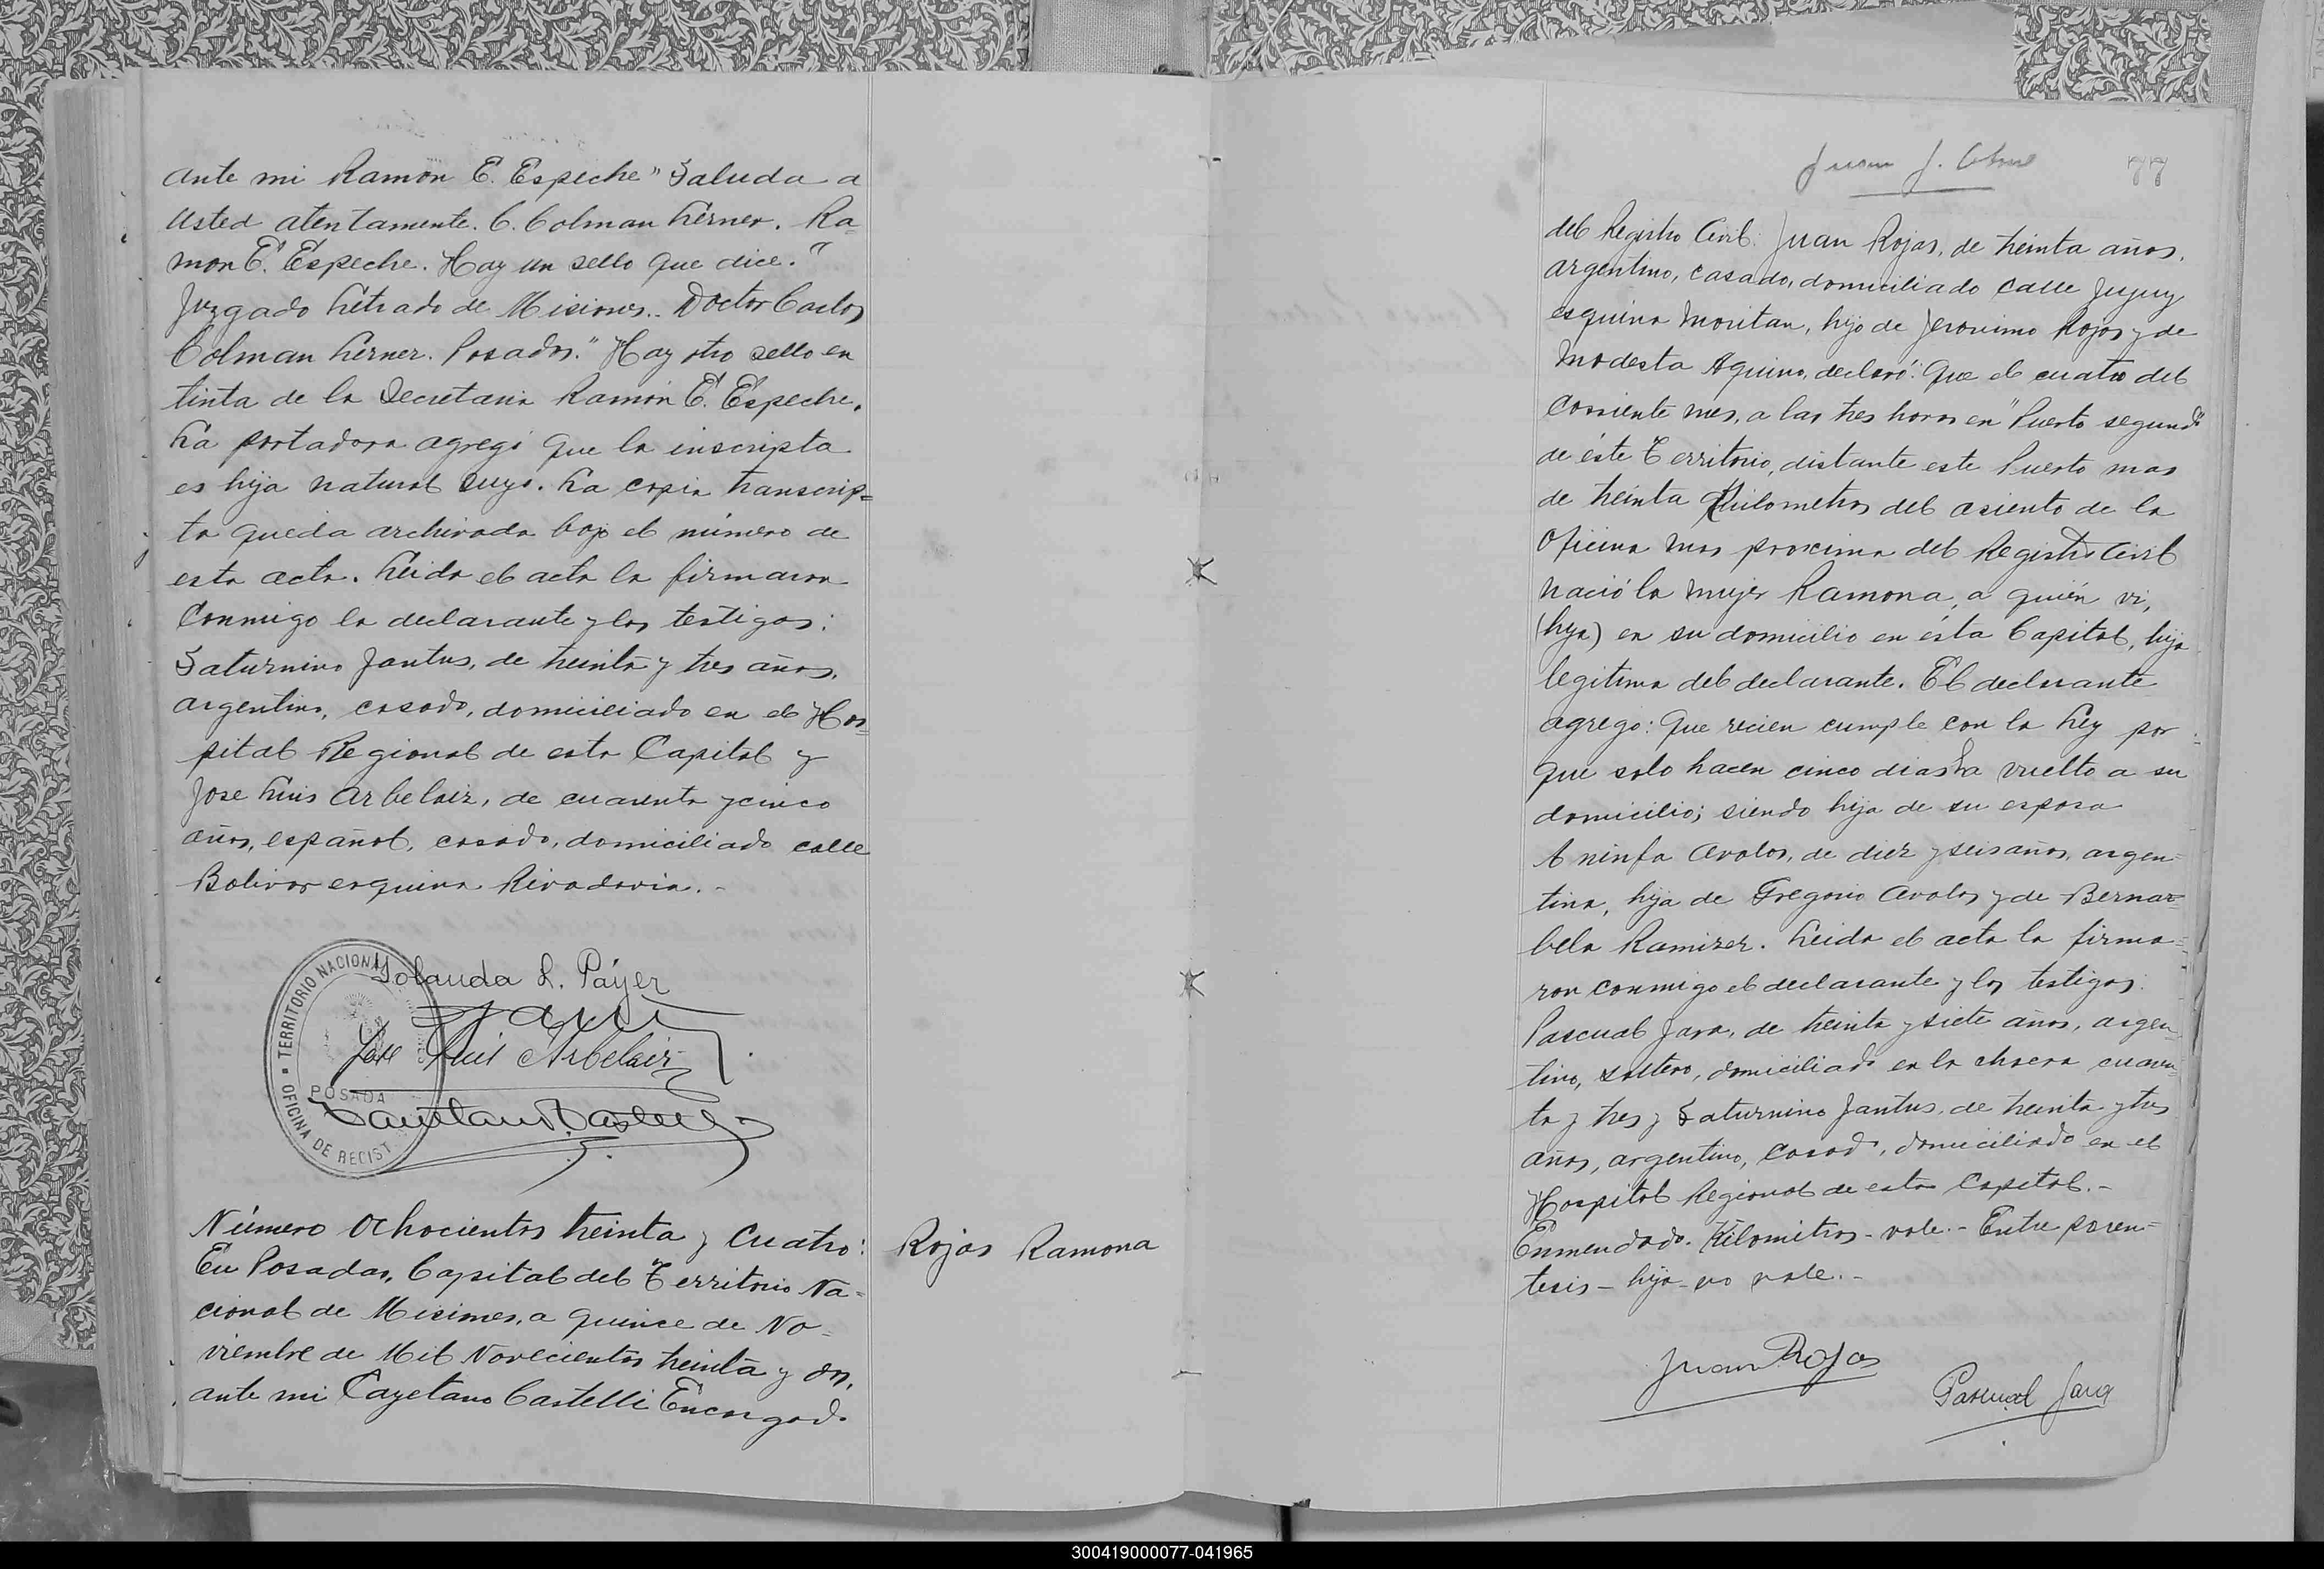 ante mi Ramón E. Espeche" Saluda a
usted atentamente. C. Colman Lerner. Ra=
mon E. Espeche. Hay un sello que dice."
Juzgado Letrado de Misiones.. Doctor Carlos
Colman Lerner. Posadas." Hay otro sello en
tinta de la Secretaria Ramón E. Espeche.
La portadora agregó que la inscripta
es hija natural suya. La copia transcrip=
ta queda archivada bajo el número de
esta acta. Leida el acta la firmaron
conmigo la declarante y los testigos:
Saturnino Jantus, de treinta y tres años,
argentino, casado, domiciliado en el Hos=
pital Regional de esta Capital y
Jose Luis Arbelaiz, de cuarenta y cinco
años, español, casado, domiciliado calle
Bolivar esquina Rivadavia.-
TERRITORIO NACIONAL
POSADA
OFICINA DE REGIST
Yolanda L. Páyer
José Luis Arbelaiz
Número Ochocientos treinta y cuatro:
En Posadas, Capital del Territorio Na=
cional de Misiones, a quince de No=
viembre de Mil Novecientos treinta y dos,
ante mi Cayetano Castelli Encargado
Rojas Ramona
Juan J.
77
del Registro Civil: Juan Rojas, de treinta años,
argentino, casado, domiciliado calle Jujuy
esquina Moritan, hijo de Jeronimo Rojas y de
Modesta Aquino, declaró: Que el cuatro del
corriente mes, a las tres horas en "Puerto segundo"
de éste Territorio, distante este Puerto mas
de treinta Kilometros del asiento de la
Oficina mas proxima del Registro Civil
nació la mujer Ramona, a quién vi,
(hija) en su domicilio en ésta Capital, hija
legitima del declarante. El declarante
agrego: Que recien cumple con la Ley por=
que solo hacen cinco dias ha vuelto a su
domicilio; siendo hija de su esposa
Aninfa Avalos, de diez y seis años, argen=
tina, hija de Gregorio Avalos y de Bernar=
bela Ramirez. Leida el acta la firma=
ron conmigo el declarante y los testigos:
Pascual Jara, de treinta y siete años, argen=
tino, soltero, domiciliado en la chacra cuaren=
ta y tres y Saturnino Jantus, de treinta y tres
años, argentino, casado, domiciliado en el
Hospital Regional de esta Capital.-
Enmendado. Kilometros - vale.- Entre paren=
tesis - hija - no vale.-
Juan Rojas
Pascual Jara
300419000077-041965